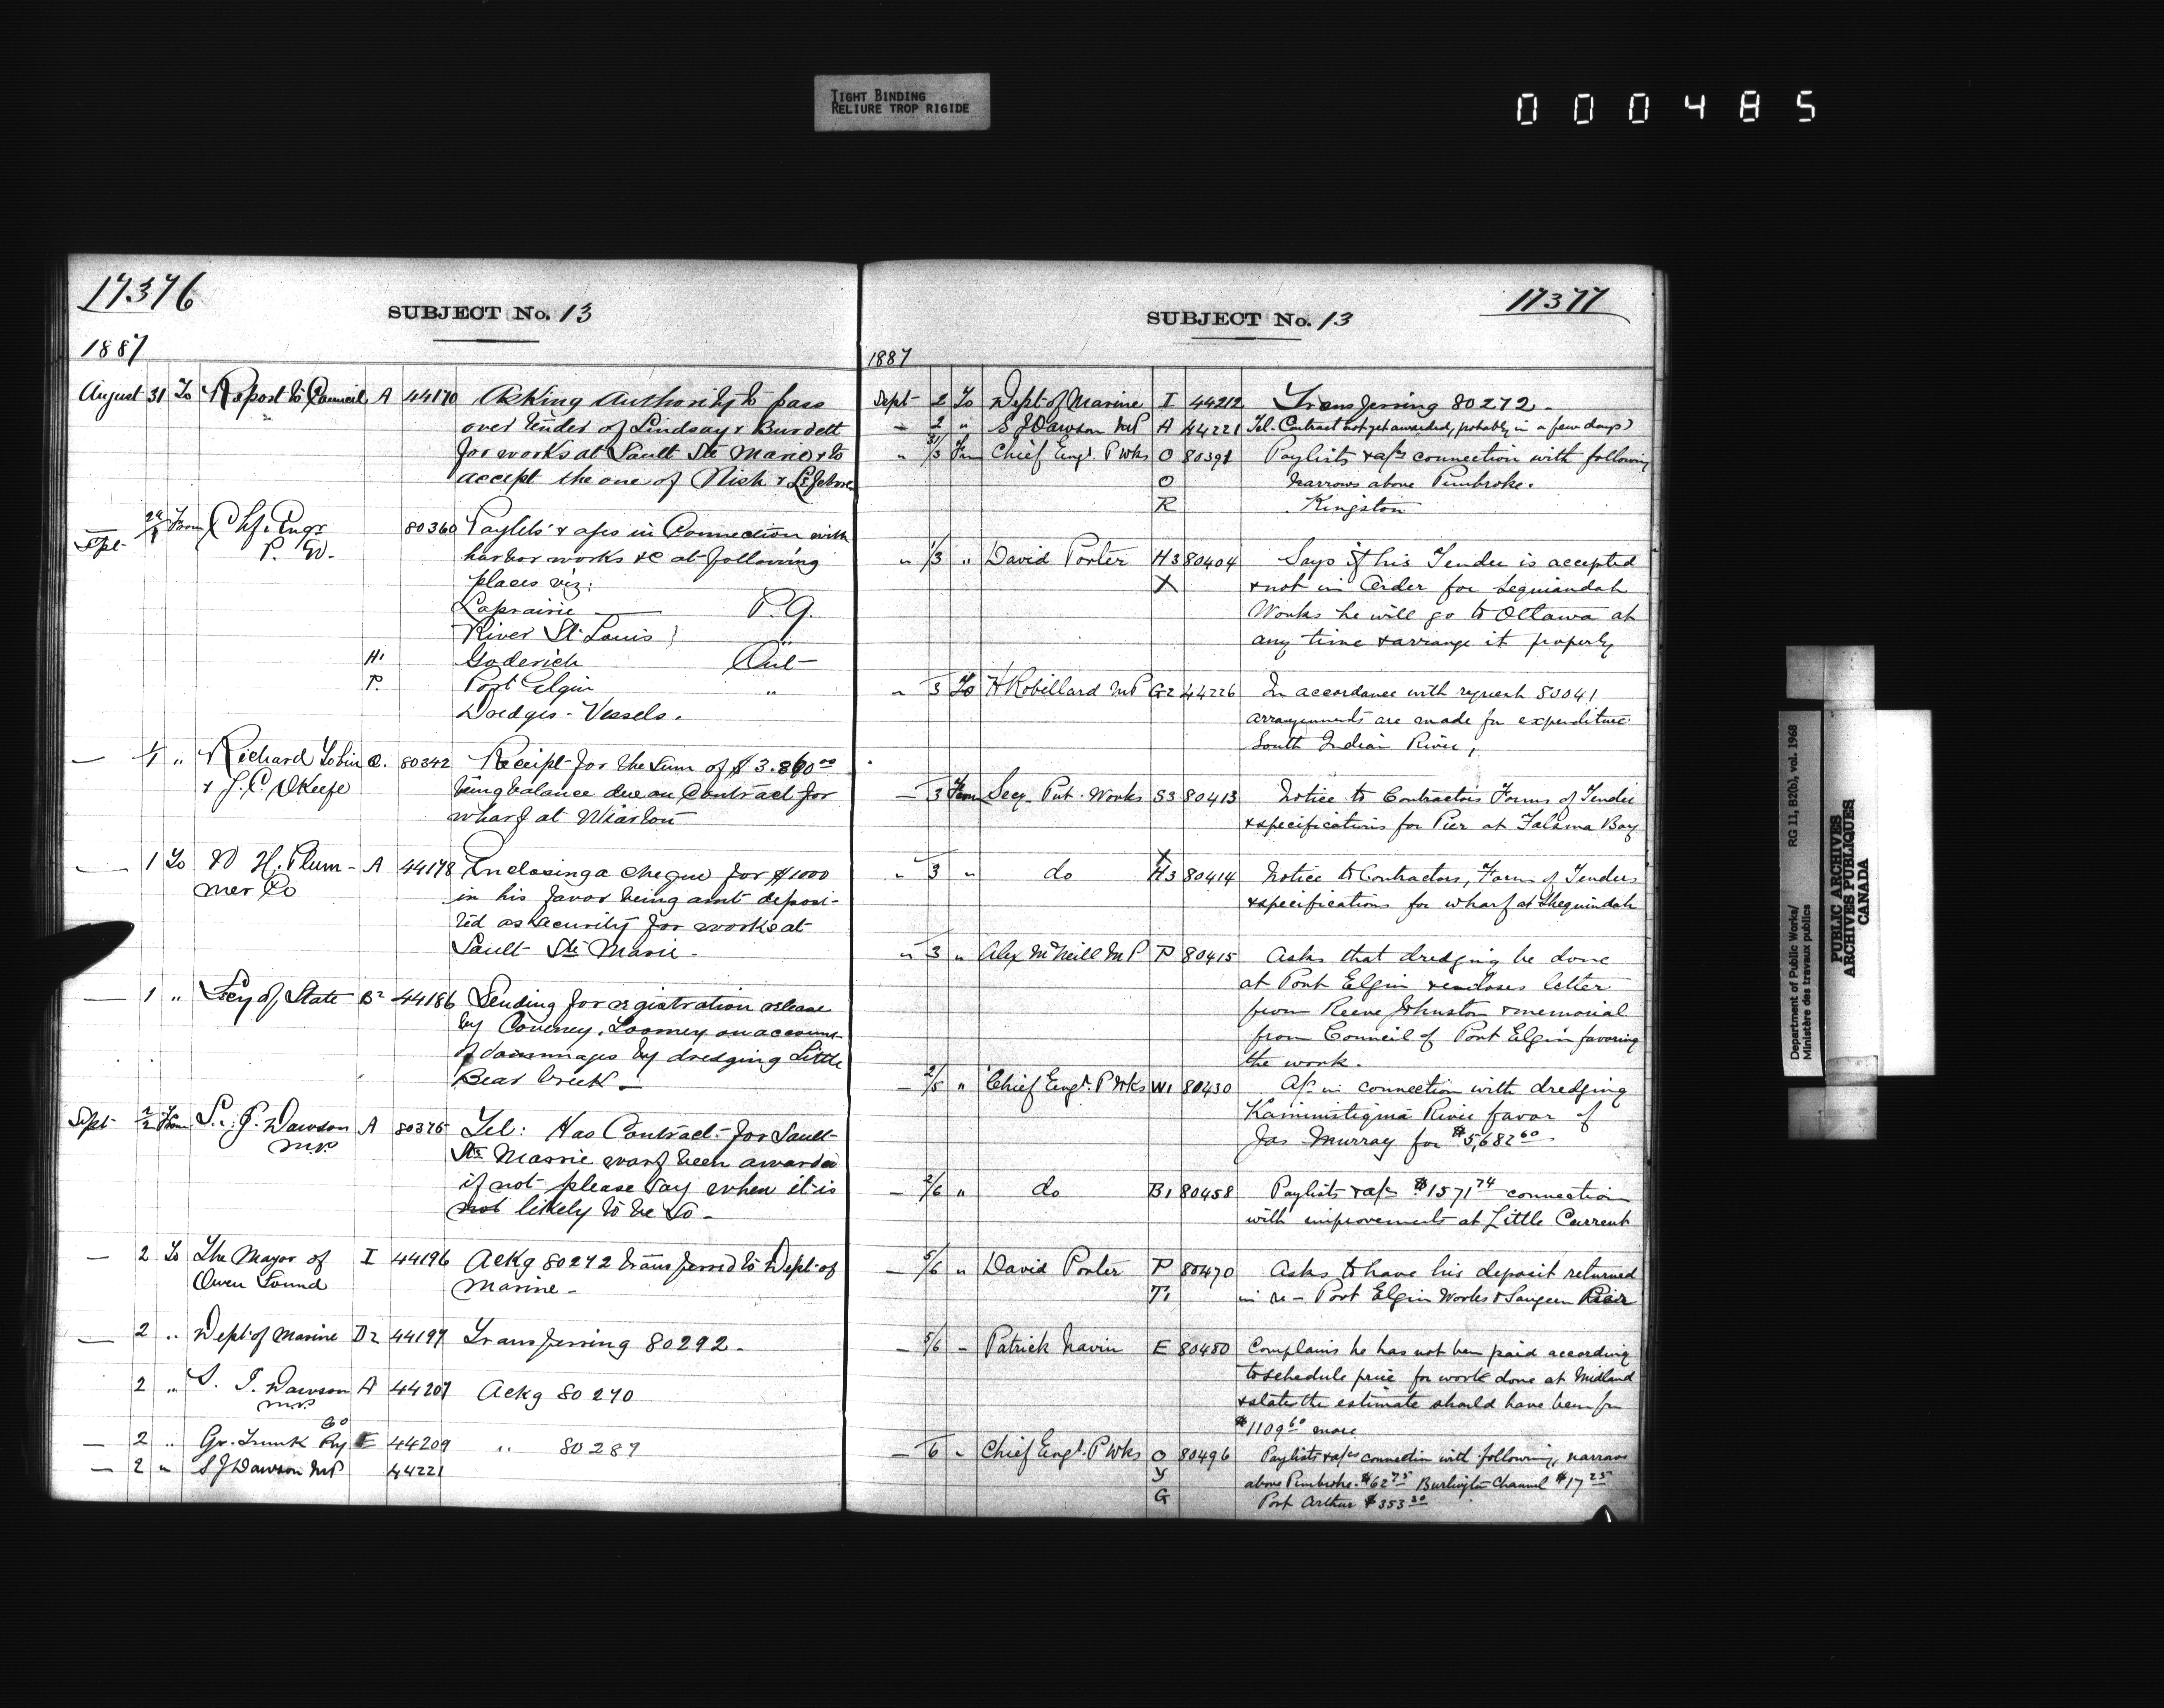 TIGHT BINDING
RELIURE TROP RIGIDE
000485
17376
SUBJECT No. 13
1887
August 31 To Report to Council A 44170 Asking Authority to pass
over tender of Lindsay & Burdett
for works at Sault Ste Marie & to
accept the one of Nish &
Sept From Chf. Engr 80360 Paylists & in Connection with
P. W. harbor works &c at following
places viz:
Laprairie P.Q.
River St. Louis } "
H1 Goderich Ont
P. Port Elgin "
Dredges - Vessels.
— 1/1 " Richard Tobin 80342 Receipt for the Sum of
& J. C. OKeefe being balance due on Contract for
wharf at Wiarton
— 1 To W H. Plum- A 44178 Enclosing a cheque for $1000
mer Co in his favor being amt deposi-
ted as security for works at
Sault Ste Marie.
— 1 " Secy of State B2 44186 Sending for registration release
by Loomey on account
of dammages by dredging Little
Bear Creek —
Sept 2/2 From S. J. Dawson A 80375 Tel: Has Contract for Sault
M.P. Ste Marrie warf been awarded
if not please say when it is
not likely to be so —
— 2 To The Mayor of I 44196 Ackg 80272 transferred to Dept of
Owen Sound Marine —
— 2 " Dept of Marine D2 44197 Transferring 80292 —
2 " S. J. Dawson A 44207 Ackg 80270
M.P.
Co
— 2 " Gr. Trunk Ry E 44209 " 80289
— 2 " S J Dawson MP 44221
17377
SUBJECT No. 13
1887
Sept 2 To Dept of Marine I 44212 Transferring 80272 —
— 2 " S J Dawson MP A 44221 Tel. Contract not yet awarded, probably in a few days)
" 31/3 From Chief Engr. P Wks O 80391 Paylists & connection with following
O Narrows above Pembroke.
R Kingston
" 1/3 " David Porter H3 80404 Says if his Tender is accepted
X & not in Order for
Works he will go to Ottawa at
any time & arrange it properly
" 3 To H Robillard MP G2 44226 In accordance with request 80041
arrangements are made for expenditure
South Indian River,
— 3 From Secy. Pub. Works S3 80413 Notice to Contractors Forms of Tender
& specifications for Pier at Bay
X
" 3 " do H3 80414 Notice to Contractors, Forms of Tenders
& specifications for wharf at Sheguindah
" 3 " Alex McNeill MP P 80415 Asks that dredging be done
at Port Elgin & encloses letter
from Reeve Johnston & memorial
from Council of Port Elgin favoring
the work.
— 2/5 " Chief Engr. P Wks W1 80430 in connection with dredging
Kaministiquia River favor of
Jas Murray for $5,682 60
— 2/6 " do B1 80458 Paylists & $1571 74 connection
with improvements at Little Current
— 5/6 " David Porter P 80470 Asks to have his deposit returned
T1 in re — Port Elgin Works & Saugeen River
— 5/6 " Patrick Navin E 80480 Complains he has not been paid according
to schedule price for work done at Midland
& states the estimate should have been for
$1109 60 more
— 6 " Chief Engr. P Wks O 80496 Paylists & connection with following, narrows
Y above Pembroke. $62 75 Burlington Channel $17 25
G Port Arthur $353 30
Department of Public Works/ RG 11, B2(b), vol. 1968
Ministère des travaux publics
PUBLIC ARCHIVES
ARCHIVES PUBLIQUES
CANADA